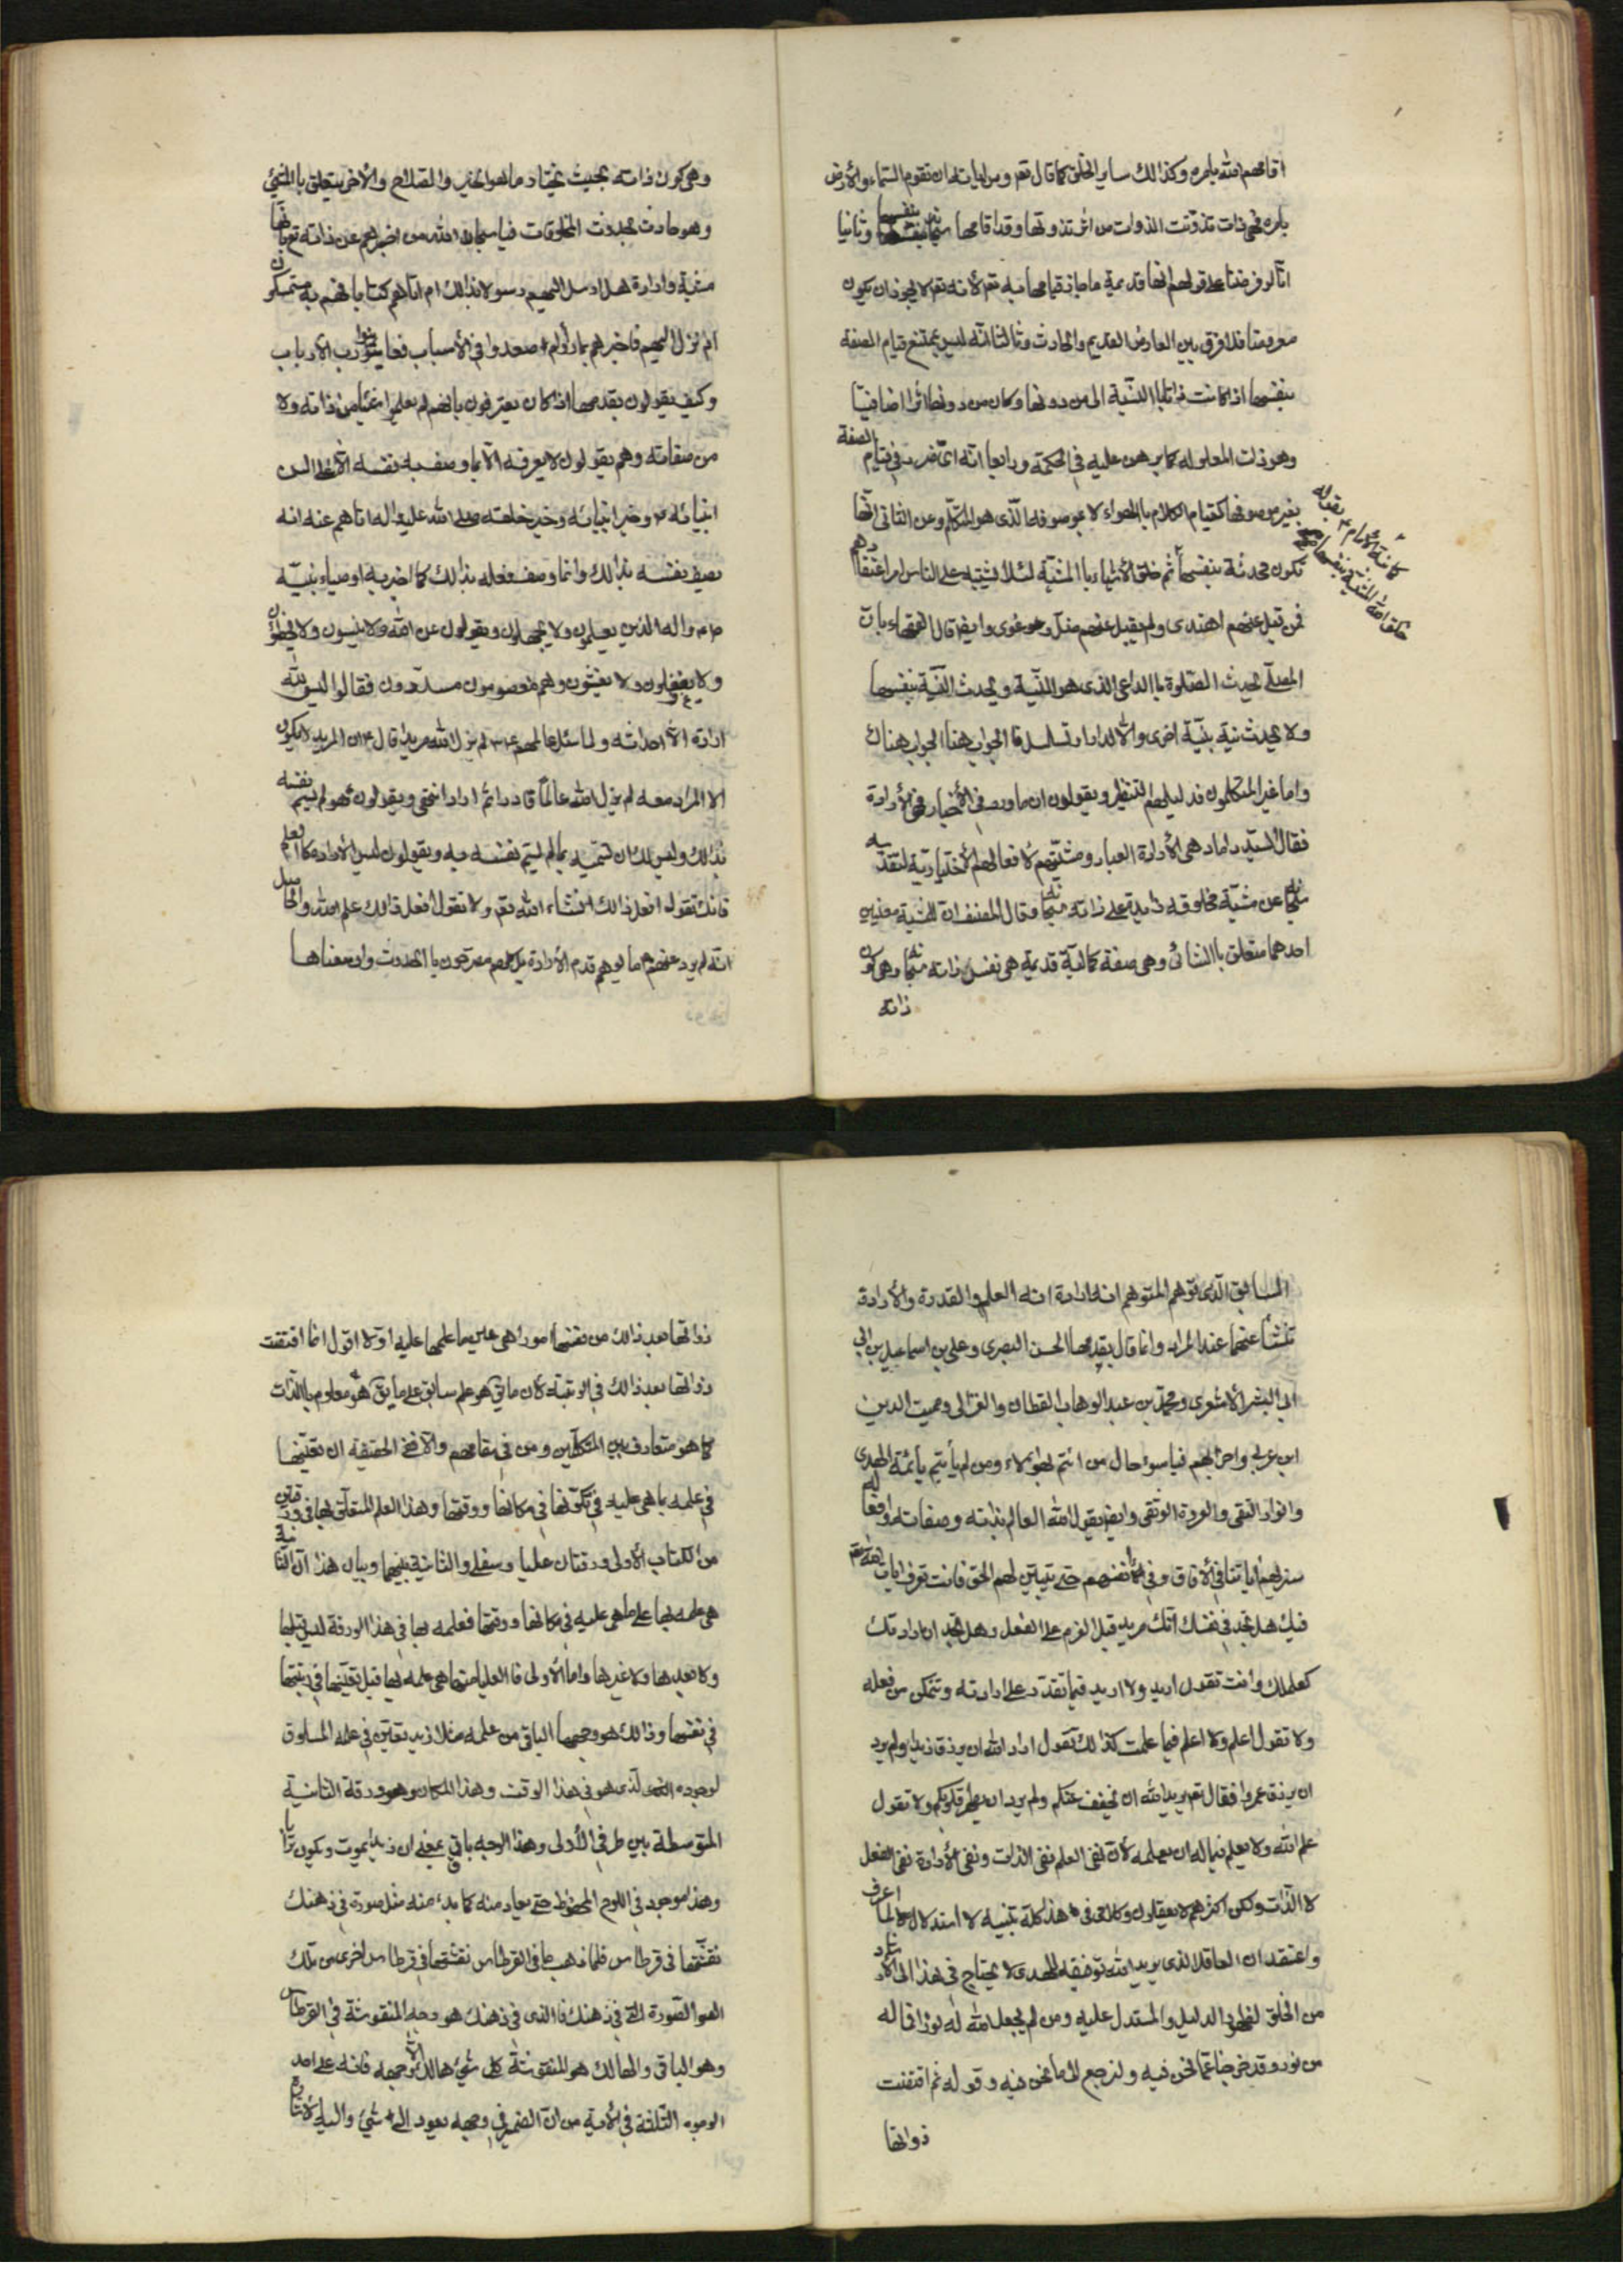 اقامهم الله بامره وكذالك ساير الخلق كما قال تعم ومن اياته ان تقوم السّماء والأرض
بامره فهى ذات تذوّتت الذوات من اثر تذوتها وقد اقامها بنفسها وثانيا
انّا لو فرضنا على قولهم انّها قديمة ما جاز قيامها به تعم لأنه تعم لا يجوز ان يكون
معروضا فلا فرق بين العارض القديم والحادث وثالثا انّه ليس بممتنع قيام الصفة
بنفسها اذا كانت ذاتا بالنّسبة الى من دونها وكان من دونها اثرا اضافيا
وهو ذات المعلوله كما برهن عليه فى الحكمة ورابعا انّه اىّ ضرر فى قيام الصفة
بغير موصوفها كقيام الكلام بالهواء لا بموصوفه الّذى هو المتكلّم وعن الثانى انّها
تكون محدثة بنفسها ثم خلق الأشياء بالمشيّة لئلا يشتبه على الناس امر اعتقادهم
خلق الله المشيّة بنفسها
فمن قبل عنهم اهتدى ولم يقبل عنهم ضلّ وغوى وايضا قال الفقهاء بانّ
المصلّى يحدث الصّلوة بالدّاعى الذى هو النيّة ويحدث النيّة بنفسها
ولا يحدث نية بنيّة اخرى والّا لدار او تسلسل فالجواب هنا الجواب هناك
واما غير المتكلمون فدليلهم التنظير ويقولون ان ما ورد فى الأخبار فى الأرادة
فقال السّيّد داماد هى الأرادة العباد ومشيّتهم لأفعالهم الأختيارية لتقدّسه
سبحانه عن مشيّة مخلوقه زايدة على ذاته سبحانه وقال المصنف ان للمشيّة معنيين
احدهما متعلق بالشائى وهى صفة كمالية قديمة هى نفس ذاته سبحانه وهى كون
ذاته
وهى كون ذاته بحيث يختار ما هو الخير والصّلاح والأخر يتعلق بالمشيئ
وهو حادث بحدوث المخلوقات فيا سبحان الله من اخبرهم عن ذاته تعم بانّها
مشية وارادة هل ارسل اليهم رسولا بذالك ام اتاهم كتابا فهم به مستمسكون
ام نزل اليهم فاخبرهم بما راوه ام صعدوا فى الأسباب فعاينوا ربّ الأرباب
وكيف يقولون بقدمها اذا كان يعترفون بانهم لم يعلموا شيئا من ذاته ولا
من صفاته وهم يقولون لا يعرفه الّا بما وصف به نفسه الّا على السن
انبيائه ع وخير انبيائه وخير خلقه صلى الله عليه واله اتاهم عنه انه
يصف نفسه بذالك وانما وصف فعله بذالك كما اخبر به اوصياء نبيّه
ص م واله الذين يعلمون ولا يجهلون ويقولون عن الله ولا ينسون ولا يخطؤن
ولا يغفلون ولا يغشّون وهم معصومون مسدّدون فقالوا ليس لله
ارادة الّا احداثه ولما سئل عالمهم ع لم يزل الله مريدا قال ع ان المريد لا يكون
الا المراد معه لم يزل الله عالمًا قادرا ثم اراد انتهى ويقولون هو لم يسم نفسه
بذالك وليس لك ان تسميه بما لم يسم نفسه به ويقولون ليس الأراده كالعلم
فانك تقول افعل ذالك انشاء الله تعم ولا تقول افعل ذالك علم الله والحاصل
انّه لم يرد عنهم ما يوهم قدم الأرادة بل كلهم مصرحون بالحدوث وان معناها
السّابق الّذى توهم المتوهم انه ارادة انه العلم والقدرة والأرادة
تنشأ عنهما عند المراد وانما قال بقدمها الحسن البصرى وعلى بن اسماعيل بن ابى
ابى البشر الأشعرى ومحمّد بن عبد الوهاب القطان والغزّالى ومميت الدين
ابن عربى واحزابهم فيا سوء حال من ائتم بهؤلاء ومن لم يأتمّ بأئمّة الهدى
وانوار التقى والعروة الوثقى وايضا يقول الله العالم بذاته وصفاته وافعاله
سنريهم اياتنا فى الأفاق وفى انفسهم حتى يتبيّن لهم الحق فانت تعرف اياب الله تعم
فيك هل تجد فى نفسك انّك مريد قبل العزم على الفعل وهل تجد ان ارادتك
كعلمك وانت تقول اريد ولا اريد فيما تقدر على ارادته وتتمكن من فعله
ولا تقول اعلم ولا اعلم فيما علمت كذالك تقول اراد الله ان يرزق زيدا ولم يرد
ان يرزق عمروا فقال تعم يريد الله ان يخفف عنكم ولم يرد ان يطهر قلوبكم ولا تقول
علم الله ولا يعلم فيما له ان يعلمه لأن نفى العلم نفى الذات ونفى الأرادة نفى الفعل
لا الذّات ولكن اكثرهم لا يعقلون وكلامى فى هذا كلّه تنبيه لا استدلال لما اعرف
واعتقد ان العاقل الذى يريد الله توفيقه للهدى لا يحتاج فى هذا الى الأزيد
من الخلق لظهور الدليل والمستدل عليه ومن لم يجعل الله له نورا فما له
من نور وقد خرجنا عمّا نحن فيه ولنرجع الى ما نحن فيه وقوله ثم اقتضت
ذواتها
ذواتها بعد ذالك من نفسها امورا هى عين ما علمها عليه اوّلا اقول انما اقتضت
ذواتها بعد ذالك فى الرتبة لأن ما يق هو علم سابق على ما يق هو معلوم بالذّات
كما هو متعارف بين المتكلّمين ومن فى مقامهم والّا ففى الحقيقة ان تعيّنها
فى علمه بما هى عليه فى تكوّنها فى مكانها ووقتها وهذا العلم المتعلّق بها فى ورقتين
من الكتاب الأولى ورقتان عليا وسفلى والثانية بينهما وبيان هذا انّ الثانية
هى علمه بها على ما هى عليه فى مكانها ووقتها فعلمه بها فى هذا الورقة ليس قبلها
ولا بعدها ولا غيرها واما الأولى فالعليا منها هى علمه بها قبل تعيّنها فى رتبتها
فى نفسها وذالك هو وجهها الباقى من علمه مثلا زيد يتعيّن فى علمه المساوق
لوجوده الذى هو فى هذا الوقت وهذا المكان وهو ورقة الثانية
المتوسطة بين طرفى الأولى وهذا الوجه باق بمعنى ان زيدا يموت ويكون ترابا
وهذا موجود فى اللوح المحفوظ حتى يعاد منه كما بدء منه مثل صورة فى ذهنك
نقشتها فى قرطاس فلما ذهب ما فى القرطاس نقشتها فى قرطاس اخرى من تلك
الصورة التى فى ذهنك فالذى فى ذهنك هو وجه المنقوشة فى القرطاس
وهو الباقى والهالك هو المنقوشة كل شيئ هالك الّا وجهه فانه على احد
الوجوه الثلثة فى الأية من انّ الضمير فى وجهه يعود الى شيئ واليه الأشارة